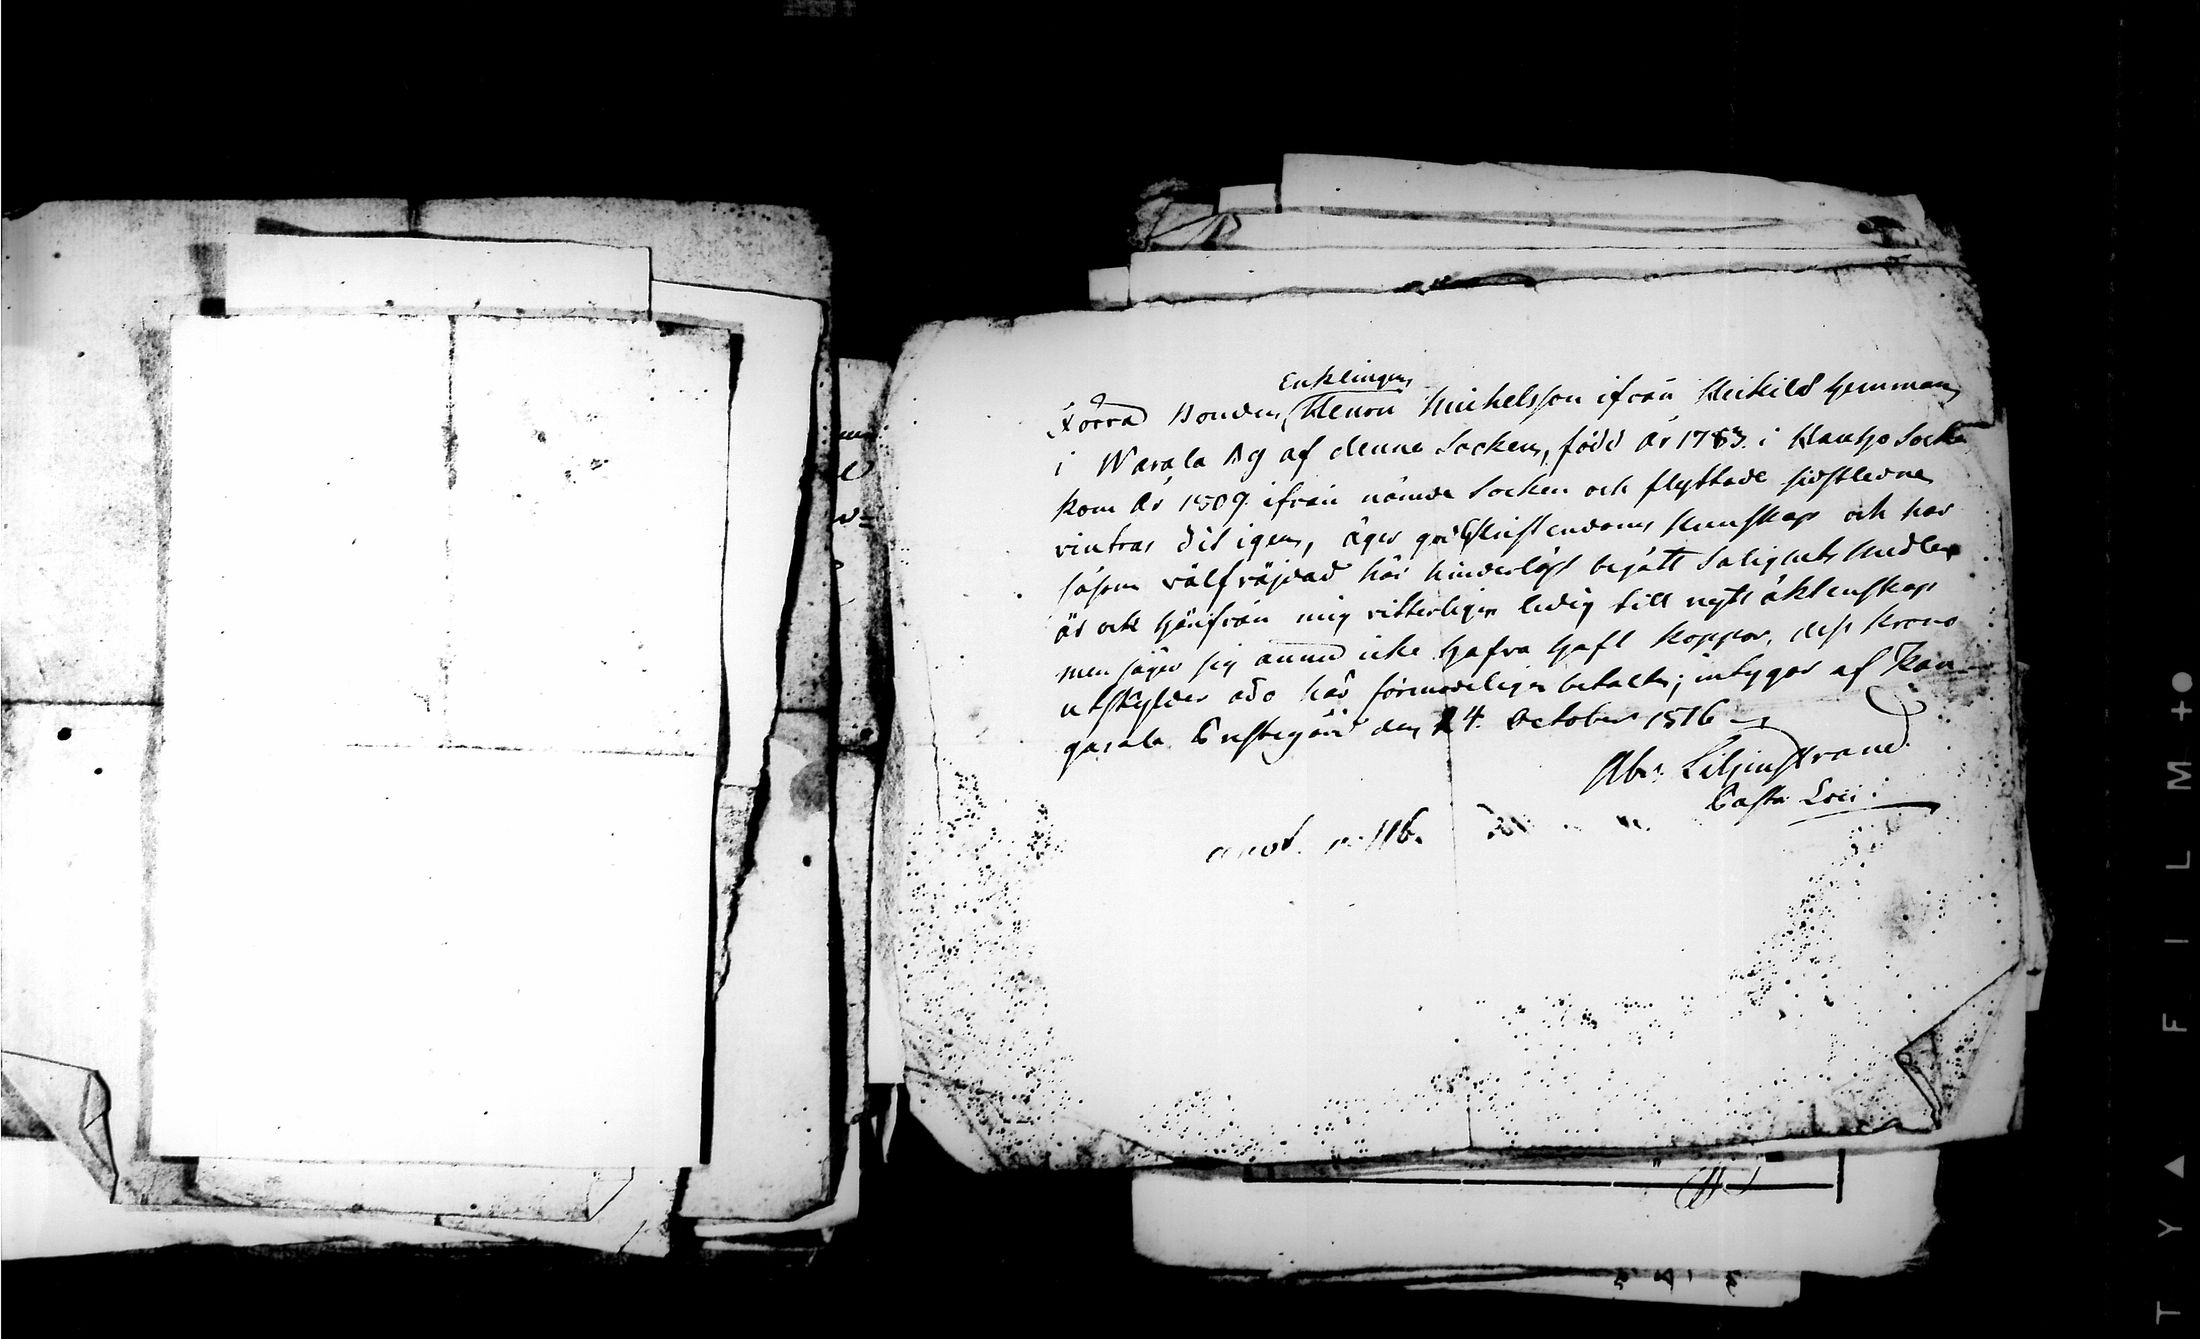 Enklingen
Förra Bonden Henric Michelsson ifrån Heikilä hemman
i Warala By af denne Socken, född år 1783 i Hauho Socken
kom år 1809 ifrån nämde Socken och flyttade sidstledne
vintras dit igen, äger god Christendoms kunskap och har
såsom välfräjdad här hinderlöst begått Salighets Medlen
är ock härifrån mig vitterligen ledig till nytt äktenskap
men säger sig ännu icke hafva haft koppor, dess krono
utskylder äro här förmodeligen betalte; intygar af Kan-
gasala Prestegård den 24 October 1816
Abr. Liljenstrand
Past. Loci.
annot. p. 116.